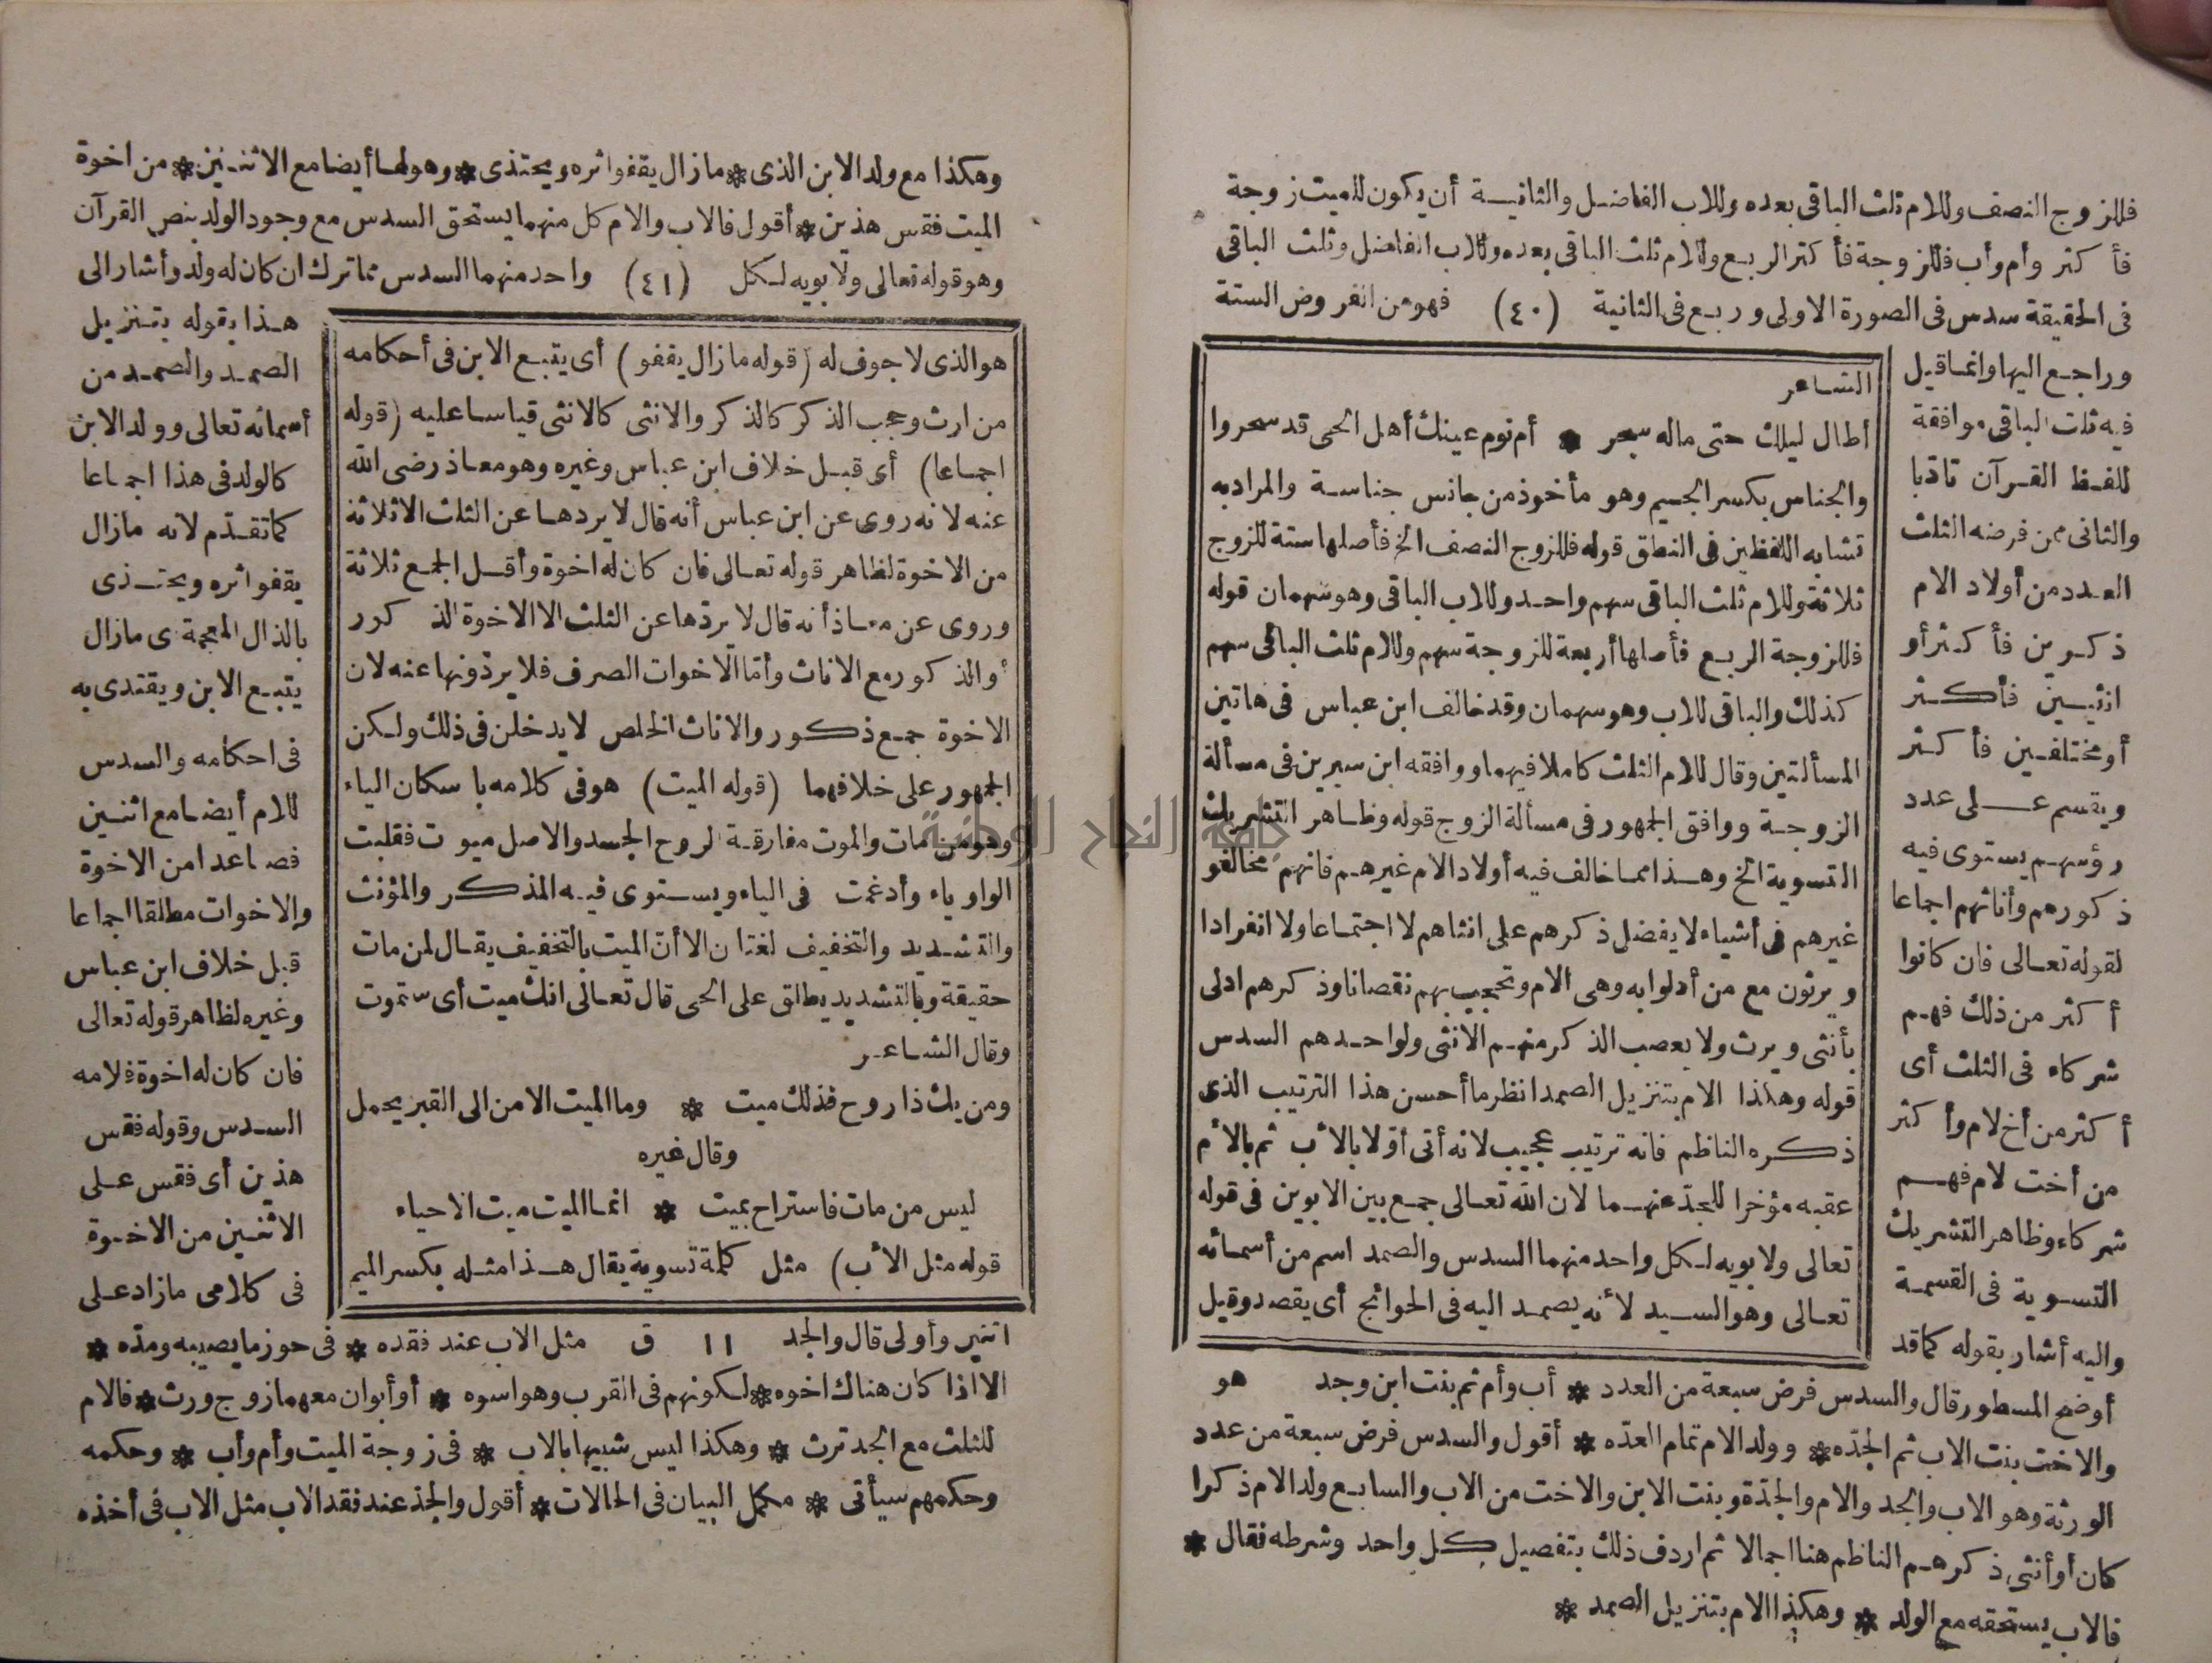 فللزوج النصف وللام ثلث الباقى بعده وللاب الفاضل والثانية أن يكون للميت زوجة
فأكثر وأم وأب فللزوجة فأكثر الربع وللام ثلث الباقى بعده وللاب الفاضل وثلث الباقى
فى الحقيقة سدس فى الصورة الاولى وربع فى الثانية (٤٠) فهو من الفروض الستة
وراجع اليها وانما قيل
فيه ثلث الباقى موافقة
للفظ القرآن تأدبا
والثانى ممن فرضه الثلث
العدد من أولاد الام
ذكرين فأكثر أو
انثيين فأكثر
أو مختلفين فأكثر
ويقسم على عدد
رؤسهم يستوى فيه
ذكورهم وأناثهم اجماعا
لقوله تعالى فان كانوا
أكثر من ذلك فهم
شركاء فى الثلث أى
أكثر من أخ لام وأكثر
من أخت لام فهم
شركاء وظاهر التشريك
التسوية فى القسمة
واليه أشار بقوله كما قد
الشاعر
أطال ليلك حتى ماله سحر * أم نوم عينك أهل الحى قد سحروا
والجناس بكسر الجيم وهو مأخوذ من جانس جناسة والمراد به
تشابه اللفظين فى النطق قوله فللزوج النصف الخ فأصلها ستة للزوج
ثلاثة وللام ثلث الباقى سهم واحد وللاب الباقى وهو سهمان قوله
فللزوجة الربع فأصلها أربعة للزوجة سهم وللام ثلث الباقى سهم
كذلك والباقى للاب وهو سهمان وقد خالف ابن عباس فى هاتين
المسألتين وقال للام الثلث كاملا فيهما ووافقه ابن سيرين فى مسألة
الزوجة ووافق الجمهور فى مسألة الزوج قوله وظاهر التشريك
التسوية الخ وهذا مما خالف فيه أولاد الام غيرهم فانهم مخالفو
غيرهم فى أشياء لا يفضل ذكرهم على انثاهم لا اجتماعا ولا انفرادا
ويرثون مع من أدلوا به وهى الام وتحجب بهم نقصانا وذكرهم ادلى
بأنثى ويرث ولا يعصب الذكر منهم الانثى ولواحدهم السدس
قوله وهكذا الام بتنزيل الصمد انظر ما أحسن هذا الترتيب الذى
ذكره الناظم فانه ترتيب عجيب لانه أتى أولا بالأب ثم بالأم
عقبه مؤخرا للجد عنهما لان الله تعالى جمع بين الابوين فى قوله
تعالى ولابويه لكل واحد منهما السدس والصمد اسم من أسمائه
تعالى وهو السيد لأنه يصمد اليه فى الحوائج أى يقصد وقيل
أوضح المسطور قال والسدس فرض سبعة من العدد * أب وأم ثم بنت ابن وجد هو
والاخت بنت الاب ثم الجده * وولد الام تمام العده * أقول والسدس فرض سبعة من عدد
الورثة وهو الاب والجد والام والجدة وبنت الابن والاخت من الاب والسابع ولد الام ذكرا
كان أو أنثى ذكرهم الناظم هنا اجمالا ثم اردف ذلك بتفصيل كل واحد وشرطه فقال *
فالاب يستحقه مع الولد * وهكذا الام بتنزيل الصمد *
وهكذا مع ولد الابن الذى * مازال يقفو اثره ويحتذى * وهو لها أيضا مع الاثنين * من اخوة
الميت فقس هذين * أقول فالاب والام كل منهما يستحق السدس مع وجود الولد بنص القرآن
وهو قوله تعالى ولابويه لكل (٤١) واحد منهما السدس مما ترك ان كان له ولد وأشار الى
هذا بقوله بتنزيل
الصمد والصمد من
أسمائه تعالى وولد الابن
كالولد فى هذا اجماعا
كما تقدم لانه مازال
يقفو اثره ويحتذى
بالذال المعجمة ى مازال
يتبع الابن ويقتدى به
فى احكامه والسدس
للام أيضا مع اثنين
فصاعدا من الاخوة
والاخوات مطلقا اجماعا
قبل خلاف ابن عباس
وغيره لظاهر قوله تعالى
فان كان له اخوة فلامه
السدس وقوله فقس
هذين أى فقس على
الاثنين من الاخوة
فى كلامى مازاد على
هو الذى لا جوف له (قوله مازال يقفو) أى يتبع الابن فى أحكامه
من ارث وحجب الذكر كالذكر والانثى كالانثى قياسا عليه (قوله
اجماعا) أى قبل خلاف ابن عباس وغيره وهو معاذ رضى الله
عنه لانه روى عن ابن عباس أنه قال لا يردها عن الثلث الا ثلاثة
من الاخوة لظاهر قوله تعالى فان كان له اخوة وأقل الجمع ثلاثة
وروى عن معاذ أنه قال لا يردها عن الثلث الا الاخوة الذكور
أو الذكور مع الاناث وأما الاخوات الصرف فلا يردونها عنه لان
الاخوة جمع ذكور والاناث الخلص لا يدخلن فى ذلك ولكن
الجمهور على خلافهما (قوله الميت) هو فى كلامه باسكان الياء
وهو من مات والموت مفارقة الروح الجسد والاصل ميوت فقلبت
الواو ياء وأدغمت فى الياء ويستوى فيه المذكر والمؤنث
والتشديد والتخفيف لغتان الا أن الميت بالتخفيف يقال لمن مات
حقيقة وبالتشديد يطلق على الحى قال تعالى انك ميت أى ستموت
وقال الشاعر
ومن يك ذا روح فذلك ميت * وما الميت الا من الى القبر يحمل
وقال غيره
ليس من مات فاستراح بميت * انما الميت ميت الاحياء
قوله مثل الأب) مثل كلمة تسوية يقال هذا مثله بكسر الميم
اثنين وأولى قال والجد ١١ ق مثل الاب عند فقده * فى حوز ما يصيبه ومده *
الا اذا كان هناك اخوه * لكونهم فى القرب وهو اسوه * أو أبوان معهما زوج ورث * فالام
للثلث مع الجد ترث * وهكذا ليس شبيها بالاب * فى زوجة الميت وأم وأب * وحكمه
وحكمهم سيأتى * مكمل البيان فى الحالات * أقول والجد عند فقد الاب مثل الاب فى أخذه
جامعة النجاح الوطنية